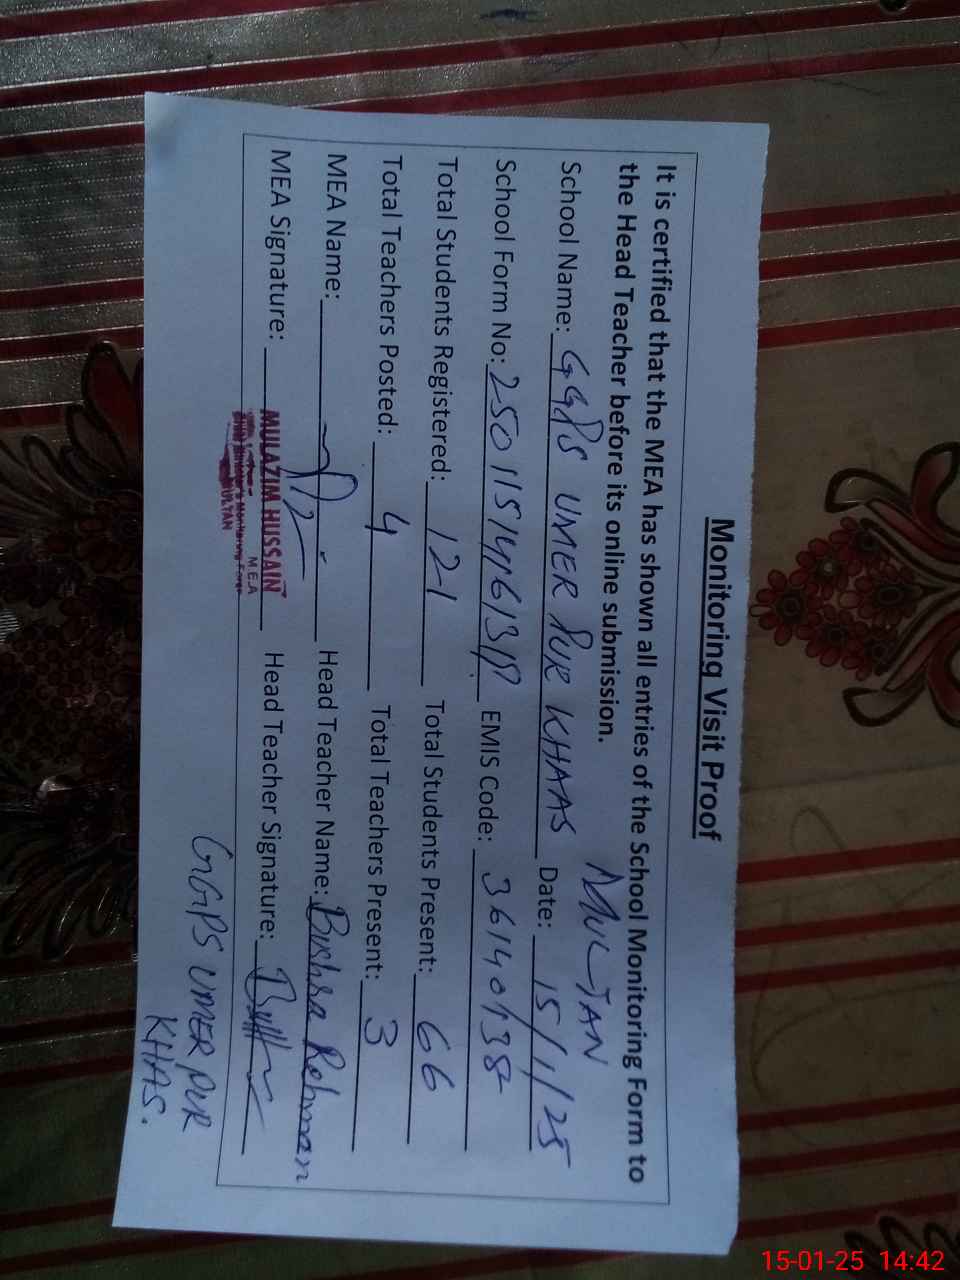 Monitoring Visit Proof
It is certified that the MEA has shown all entries of the School Monitoring Form to
the Head Teacher before its online submission.
MULTAN
School Name: GGPS UMER PUR KHAAS Date: 15/1/25
School Form No: EMIS Code:
Total Students Registered: 121 Total Students Present: 66
Total Teachers Posted: 4 Total Teachers Present: 3
MEA Name: Head Teacher Name: Bushra Rehman
MEA Signature: MULAZIM HUSSAIN Head Teacher Signature:
MEA
MULTAN
GGPS UMER PUR
KHAS.
15-01-25 14:42